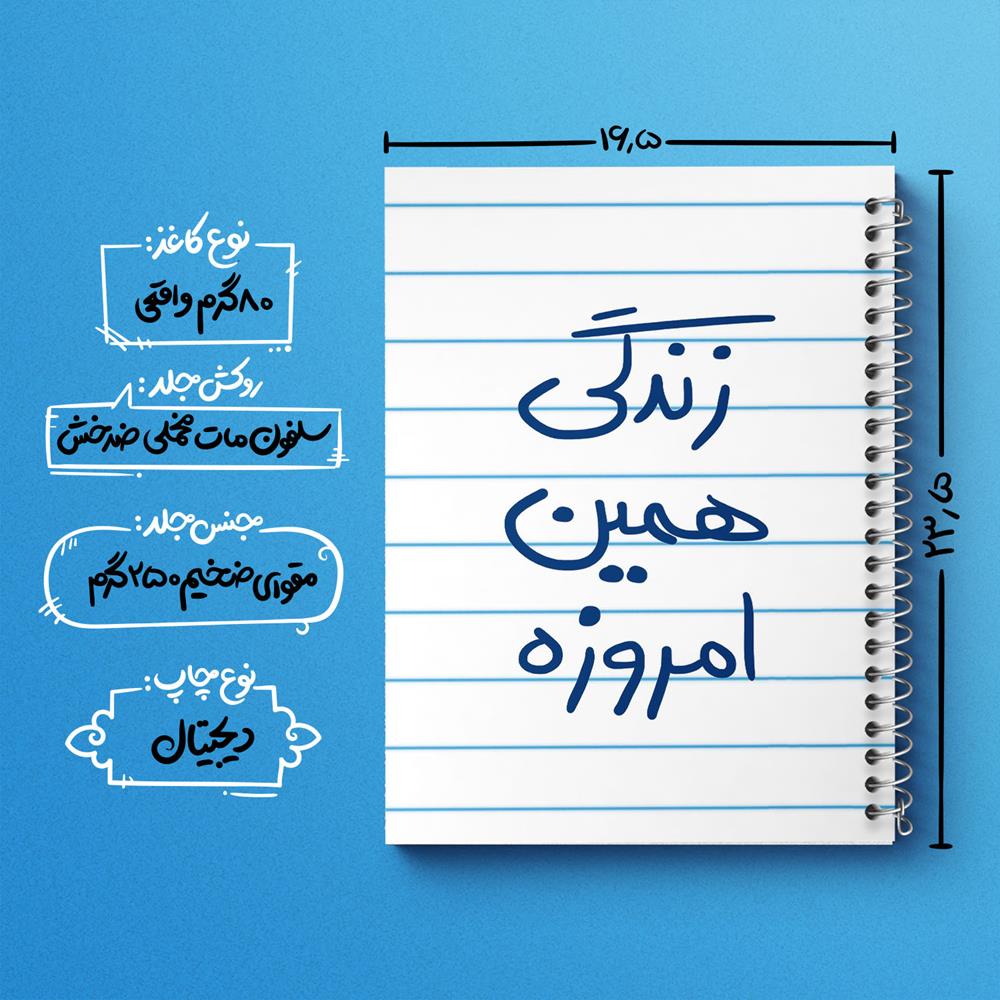 ۱۶٫۵
۲۳٫۵
زندگی
همین
امروزه
نوع کاغذ:
۸۰ گرم واقعی
روکش جلد:
سلفون مات مخملی ضدخش
جنس جلد:
مقوای ضخیم ۲۵۰ گرم
نوع چاپ:
دیجیتال